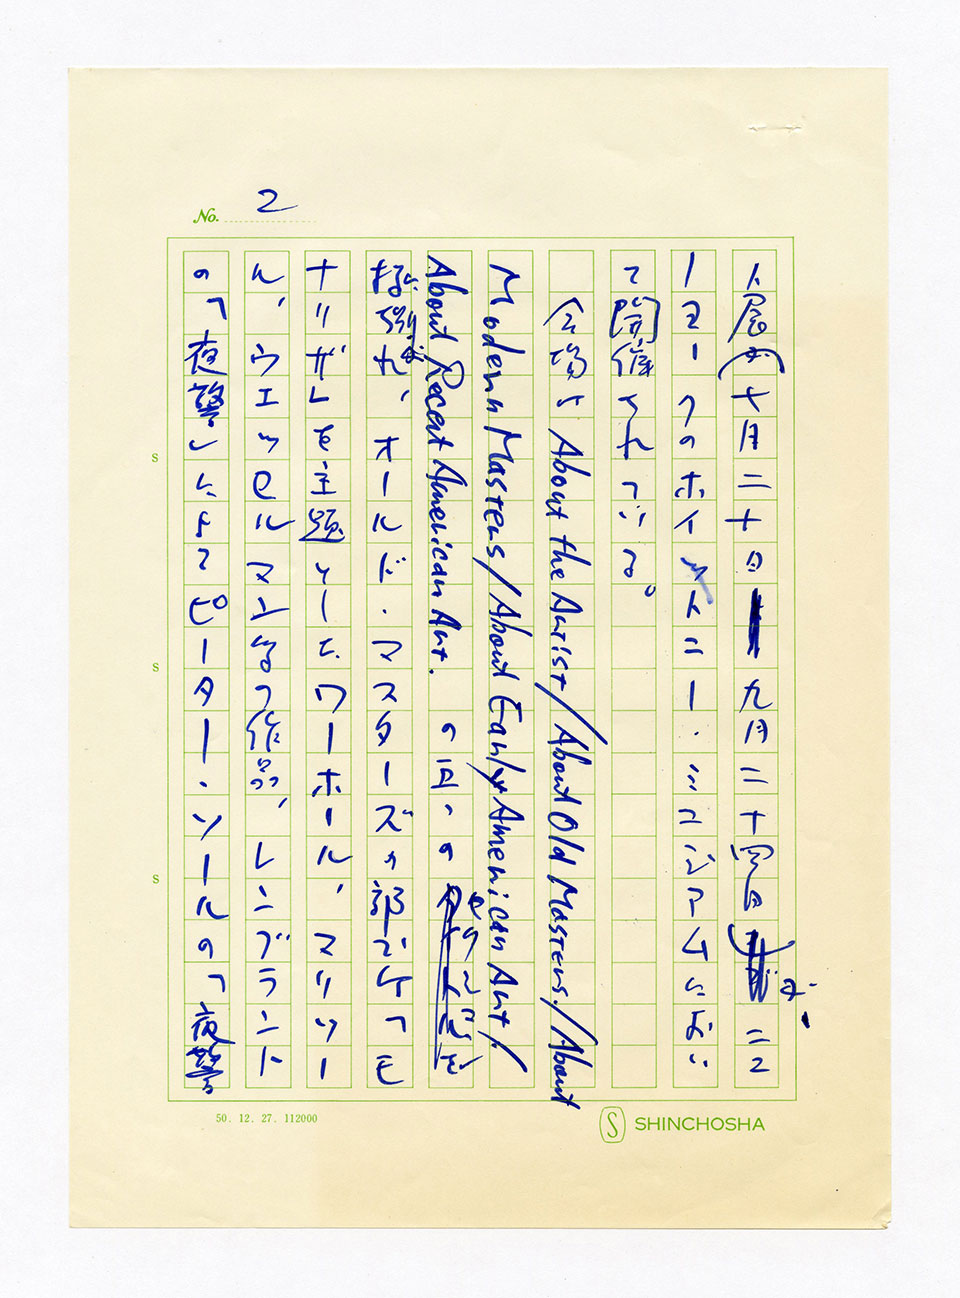 No. 2
ト展が七月二十日 九月二十四日まで ニユ
ーヨークのホイツトニー・ミユジアムにおい
て開催されている。
会場は About the Artist/About Old Masters./About
Modern Masters/About Early American Art/
About Recent American Art. の五つのセクシヨンに
振り別けられ、オールド・マスターズの部ではモ
ナリザを主題としたワーホール、マリソー
ル、ウエツセルマン等の作品、レンブラント
の「夜警」によるピーター・ソールの「夜警
S
S
S
50. 12. 27. 112000
S SHINCHOSHA